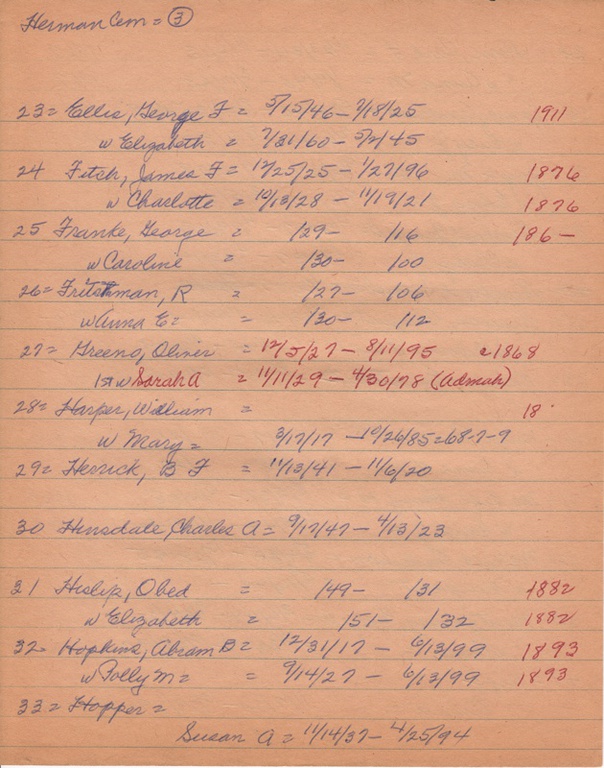 Herman Cem = ③
23 = Ellis, George F = 5/15/46 – 2/18/25 1911
w Elizabeth = 7/31/60 – 5/2/45
24 Fitch, James F = 12/25/25 – 1/27/96 1876
w Charlotte = 10/13/28 – 11/19/21 1876
25 Franke, George = /29 – /16 186–
w Caroline = /30 – /00
26 = Fritchman, R = /27 – /06
w Anna E = = /30 – /12
27 = Greeno, Oliver = 12/5/27 – 8/11/95 c1868
1st w Sarah A = 11/11/29 – 4/30/78 (Admah)
28 = Harper, William = 18
w Mary = 3/17/17 – 10/26/85 = 68-7-9
29 = Herrick, B F = 11/13/41 – 11/6/20
30 Hinsdale, Charles A = 9/17/47 – 4/13/23
31 Hislip, Obed = /49 – /31 1882
w Elizabeth = /51 – /32 1882
32 Hopkins, Abram B = 12/31/17 – 6/13/99 1893
w Polly M = = 9/14/27 – 6/13/99 1893
33 = Hopper =
Susan A = 11/14/37 – 4/25/94